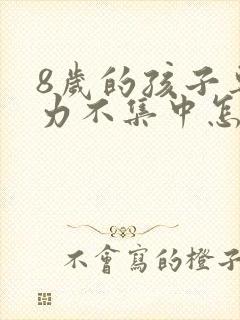 8歲的孩子
力不集中怎
不會寫的橙子